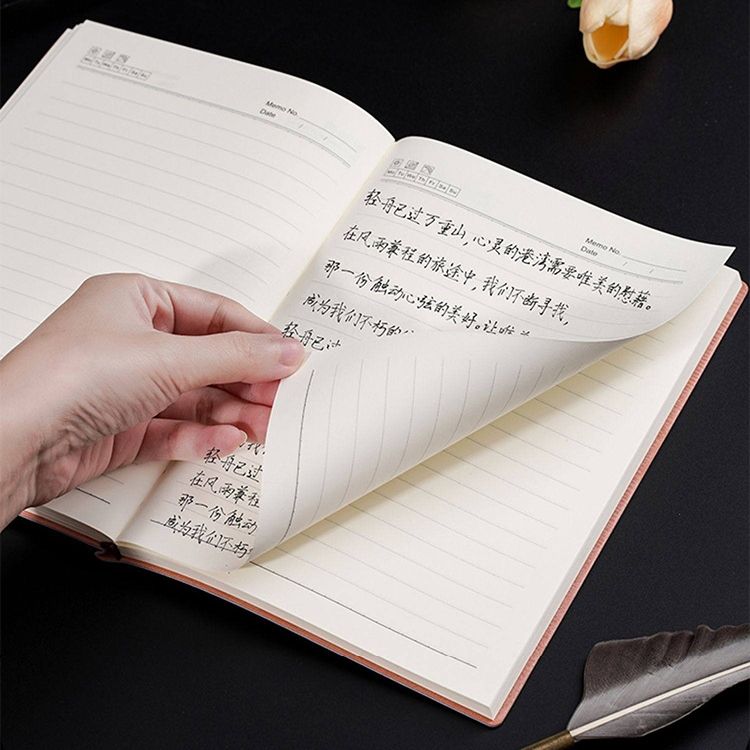 Mo Tu We Th Fr Sa Su
Memo No.
Date / /
Mo Tu We Th Fr Sa Su
Memo No.
/ /
轻舟已过万重山,心灵的港湾需要唯美的慰藉。
在风雨兼程的旅途中,我们不断寻找,
那一份触动心弦的美好。让唯美
成为我们不朽的
轻舟已过
轻舟已过
在风雨兼程
那一份触动
成为我们不朽